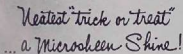 Neatest "trick or treat"
...a Microsheen Shine!